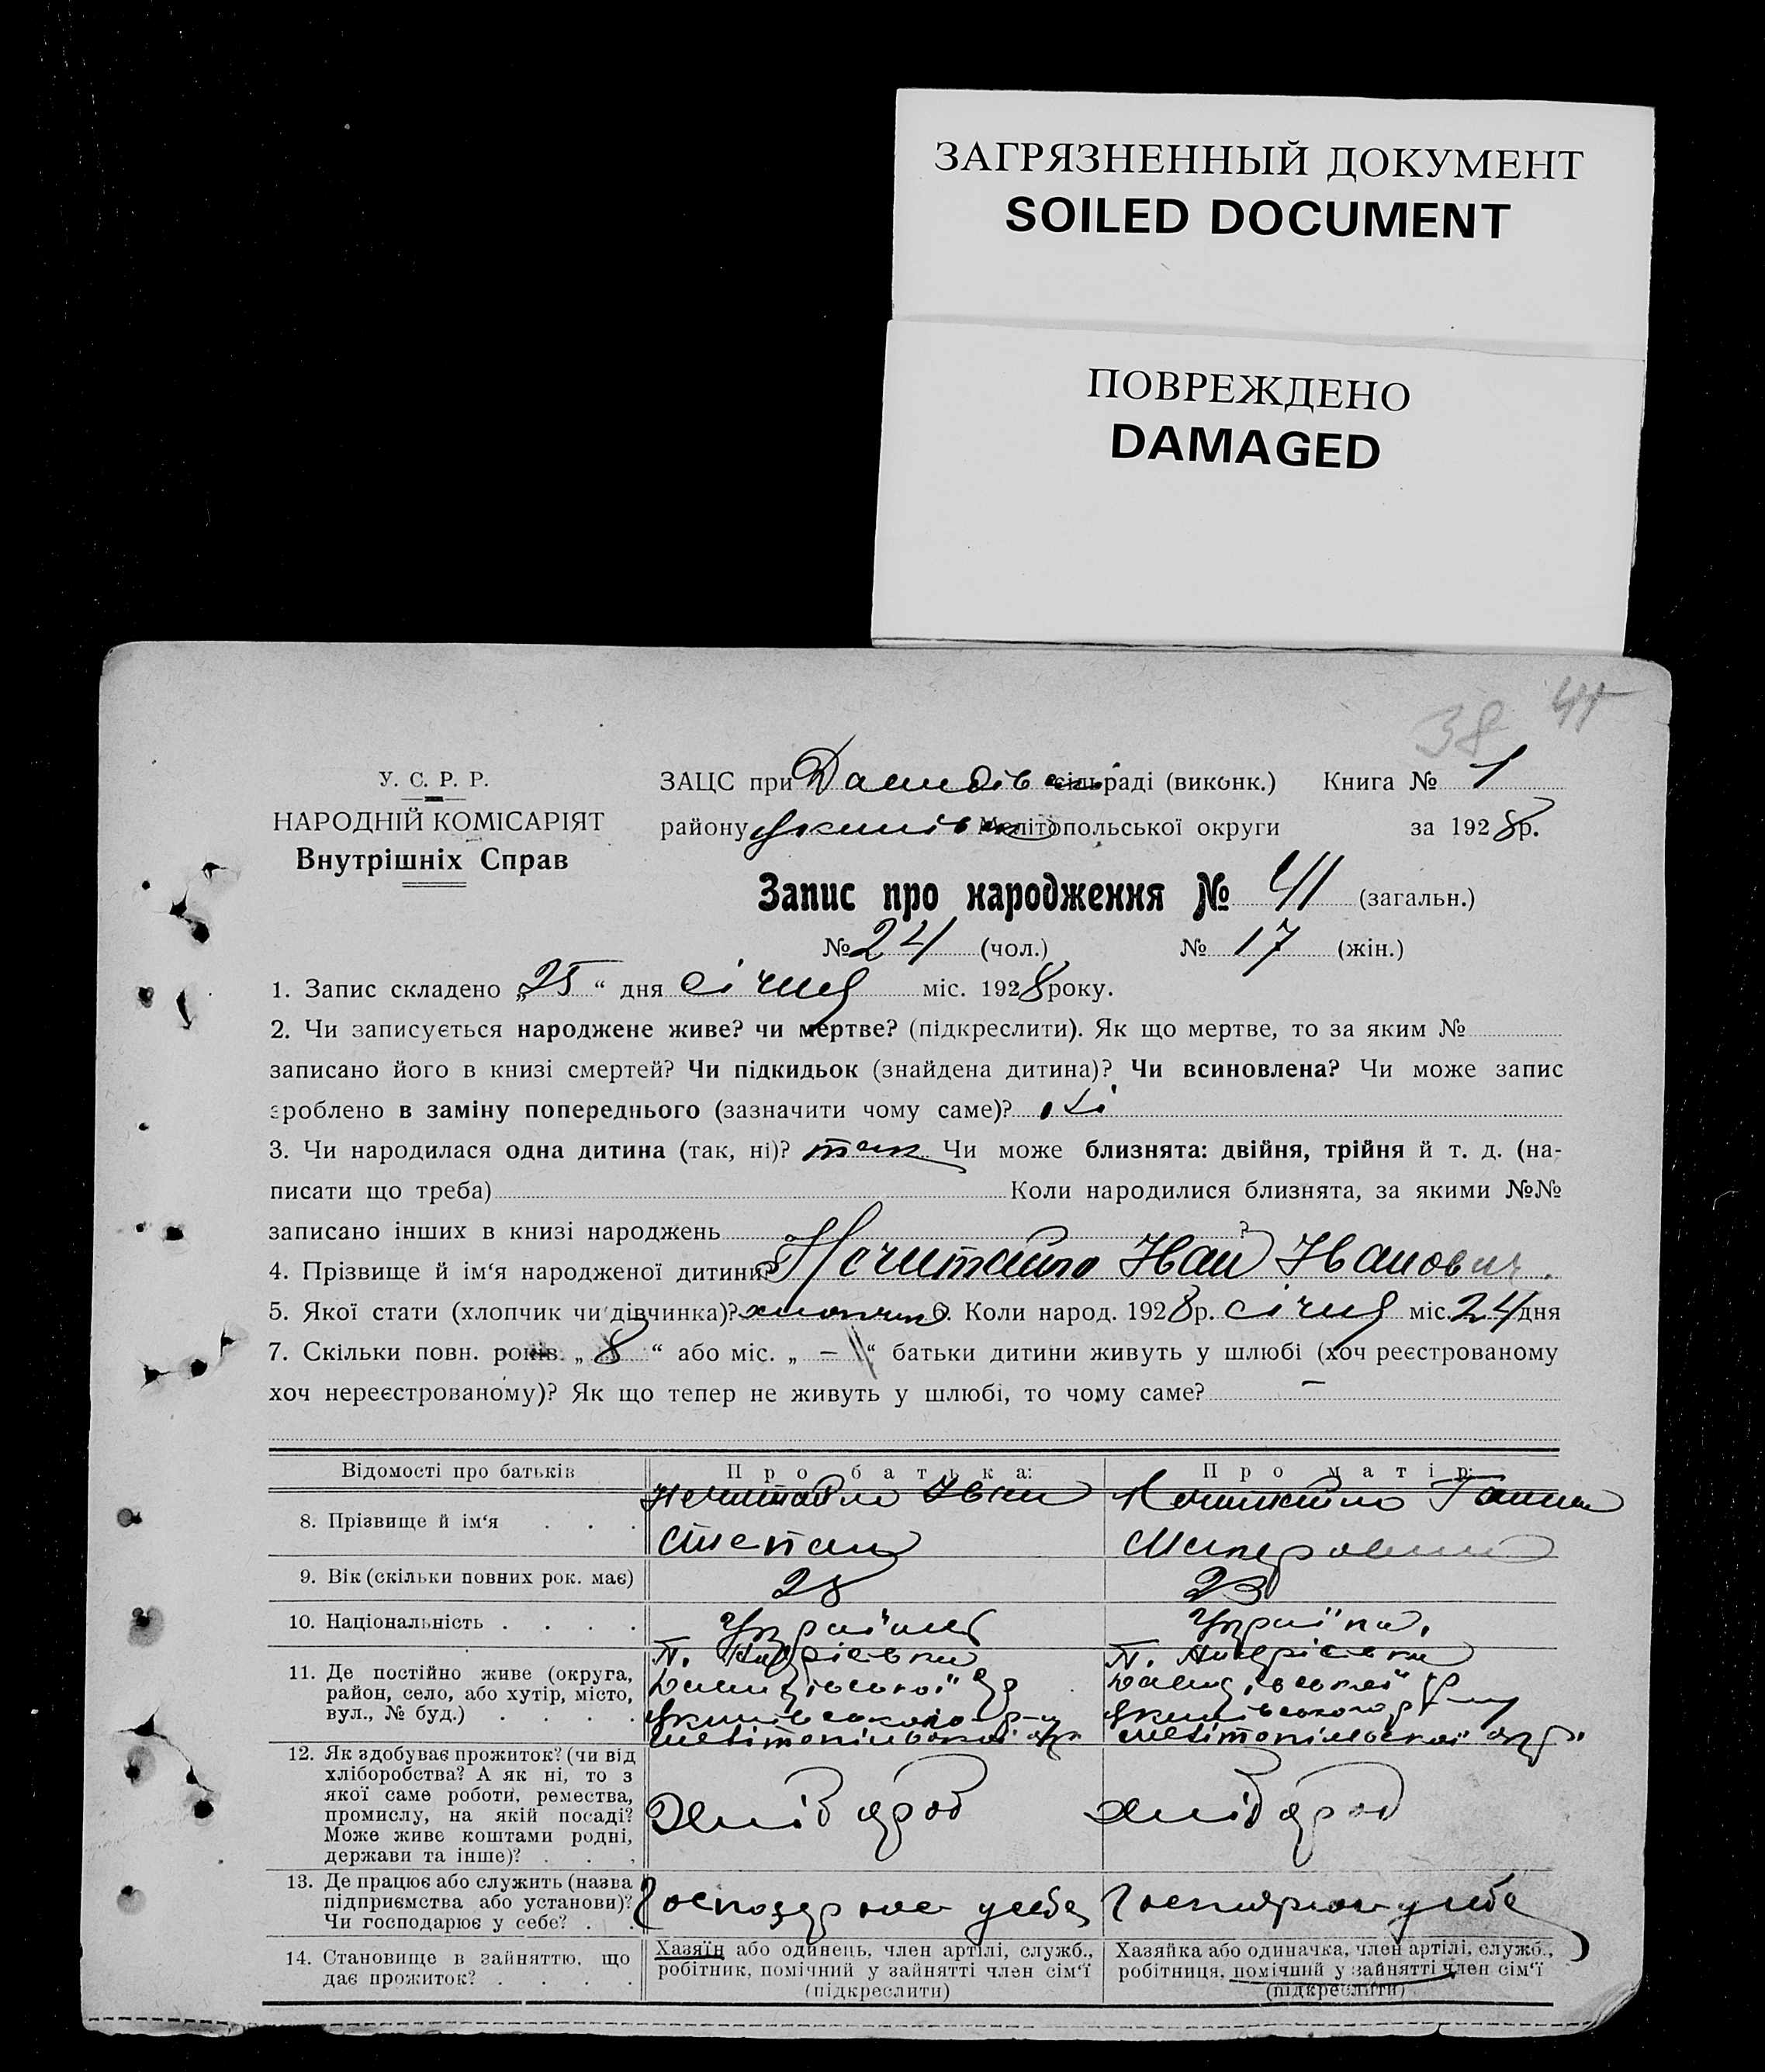 ЗАГРЯЗНЕННЫЙ ДОКУМЕНТ
SOILED DOCUMENT
ПОВРЕЖДЕНО
DAMAGED
38 41
У. С. Р. Р.
НАРОДНІЙ КОМІСАРІЯТ
Внутрішніх Справ
ЗАЦС при Давидівск сільраді (виконк.) Книга № 1
району Якимівск Мелітопольської округи за 1928 р.
Запис про народження № 41 (загальн.)
№ 24 (чол.) № 17 (жін.)
1. Запис складено „25“ дня січня міс. 1928 року.
2. Чи записується народжене живе? чи мертве? (підкреслити). Як що мертве, то за яким №
записано його в книзі смертей? Чи підкидьок (знайдена дитина)? Чи всиновлена? Чи може запис
зроблено в заміну попереднього (зазначити чому саме)? ні
3. Чи народилася одна дитина (так, ні)? так Чи може близнята: двійня, трійня й т. д. (на-
писати що треба) Коли народилися близнята, за якими №№
записано інших в книзі народжень ?
4. Прізвище й ім‘я народженої дитини? Нечитайло Іван Іванович.
5. Якої стати (хлопчик чи дівчинка)? хлопчик 6. Коли народ. 1928 р. січня міс. 24 дня
7. Скільки повн. років. „ 8 “ або міс. „ — “ батьки дитини живуть у шлюбі (хоч реєстрованому
хоч нереєстрованому)? Як що тепер не живуть у шлюбі, то чому саме? —
Відомості про батьків Про батька: Про матір:
8. Прізвище й ім‘я . . . Нечитайло Іван Степан Нечитайло Ганна
9. Вік (скільки повних рок. має) 28 23
10. Національність . . . . Украінец Украінка.
11. Де постійно живе (округа,
район, село, або хутір, місто,
вул., № буд.) . . . .
П. Андріівка
Давидівської с/р
Якимівського р-ну
Мелітопільскоі окр
П. Андріівка
Давидівської с/р
Якимівського р-ну
Мелітопільскоі окр
12. Як здобуває прожиток? (чи від
хліборобства? А як ні, то з
якої саме роботи, ремества,
промислу, на якій посаді?
Може живе коштами родні,
держави та інше)? . . .
Хлібороб Хлібороб
13. Де працює або служить (назва
підприємства або установи)?
Чи господарює у себе? . .
Господарює у себе Господарює у себе
14. Становище в зайняттю, що
дає прожиток? . . . .
Хазяїн або одинець, член артілі, служб.,
робітник, помічний у зайнятті член сім‘ї
(підкреслити)
Хазяйка або одиначка, член артілі, служб.,
робітниця, помічний у зайнятті член сім‘ї
(підкреслити)